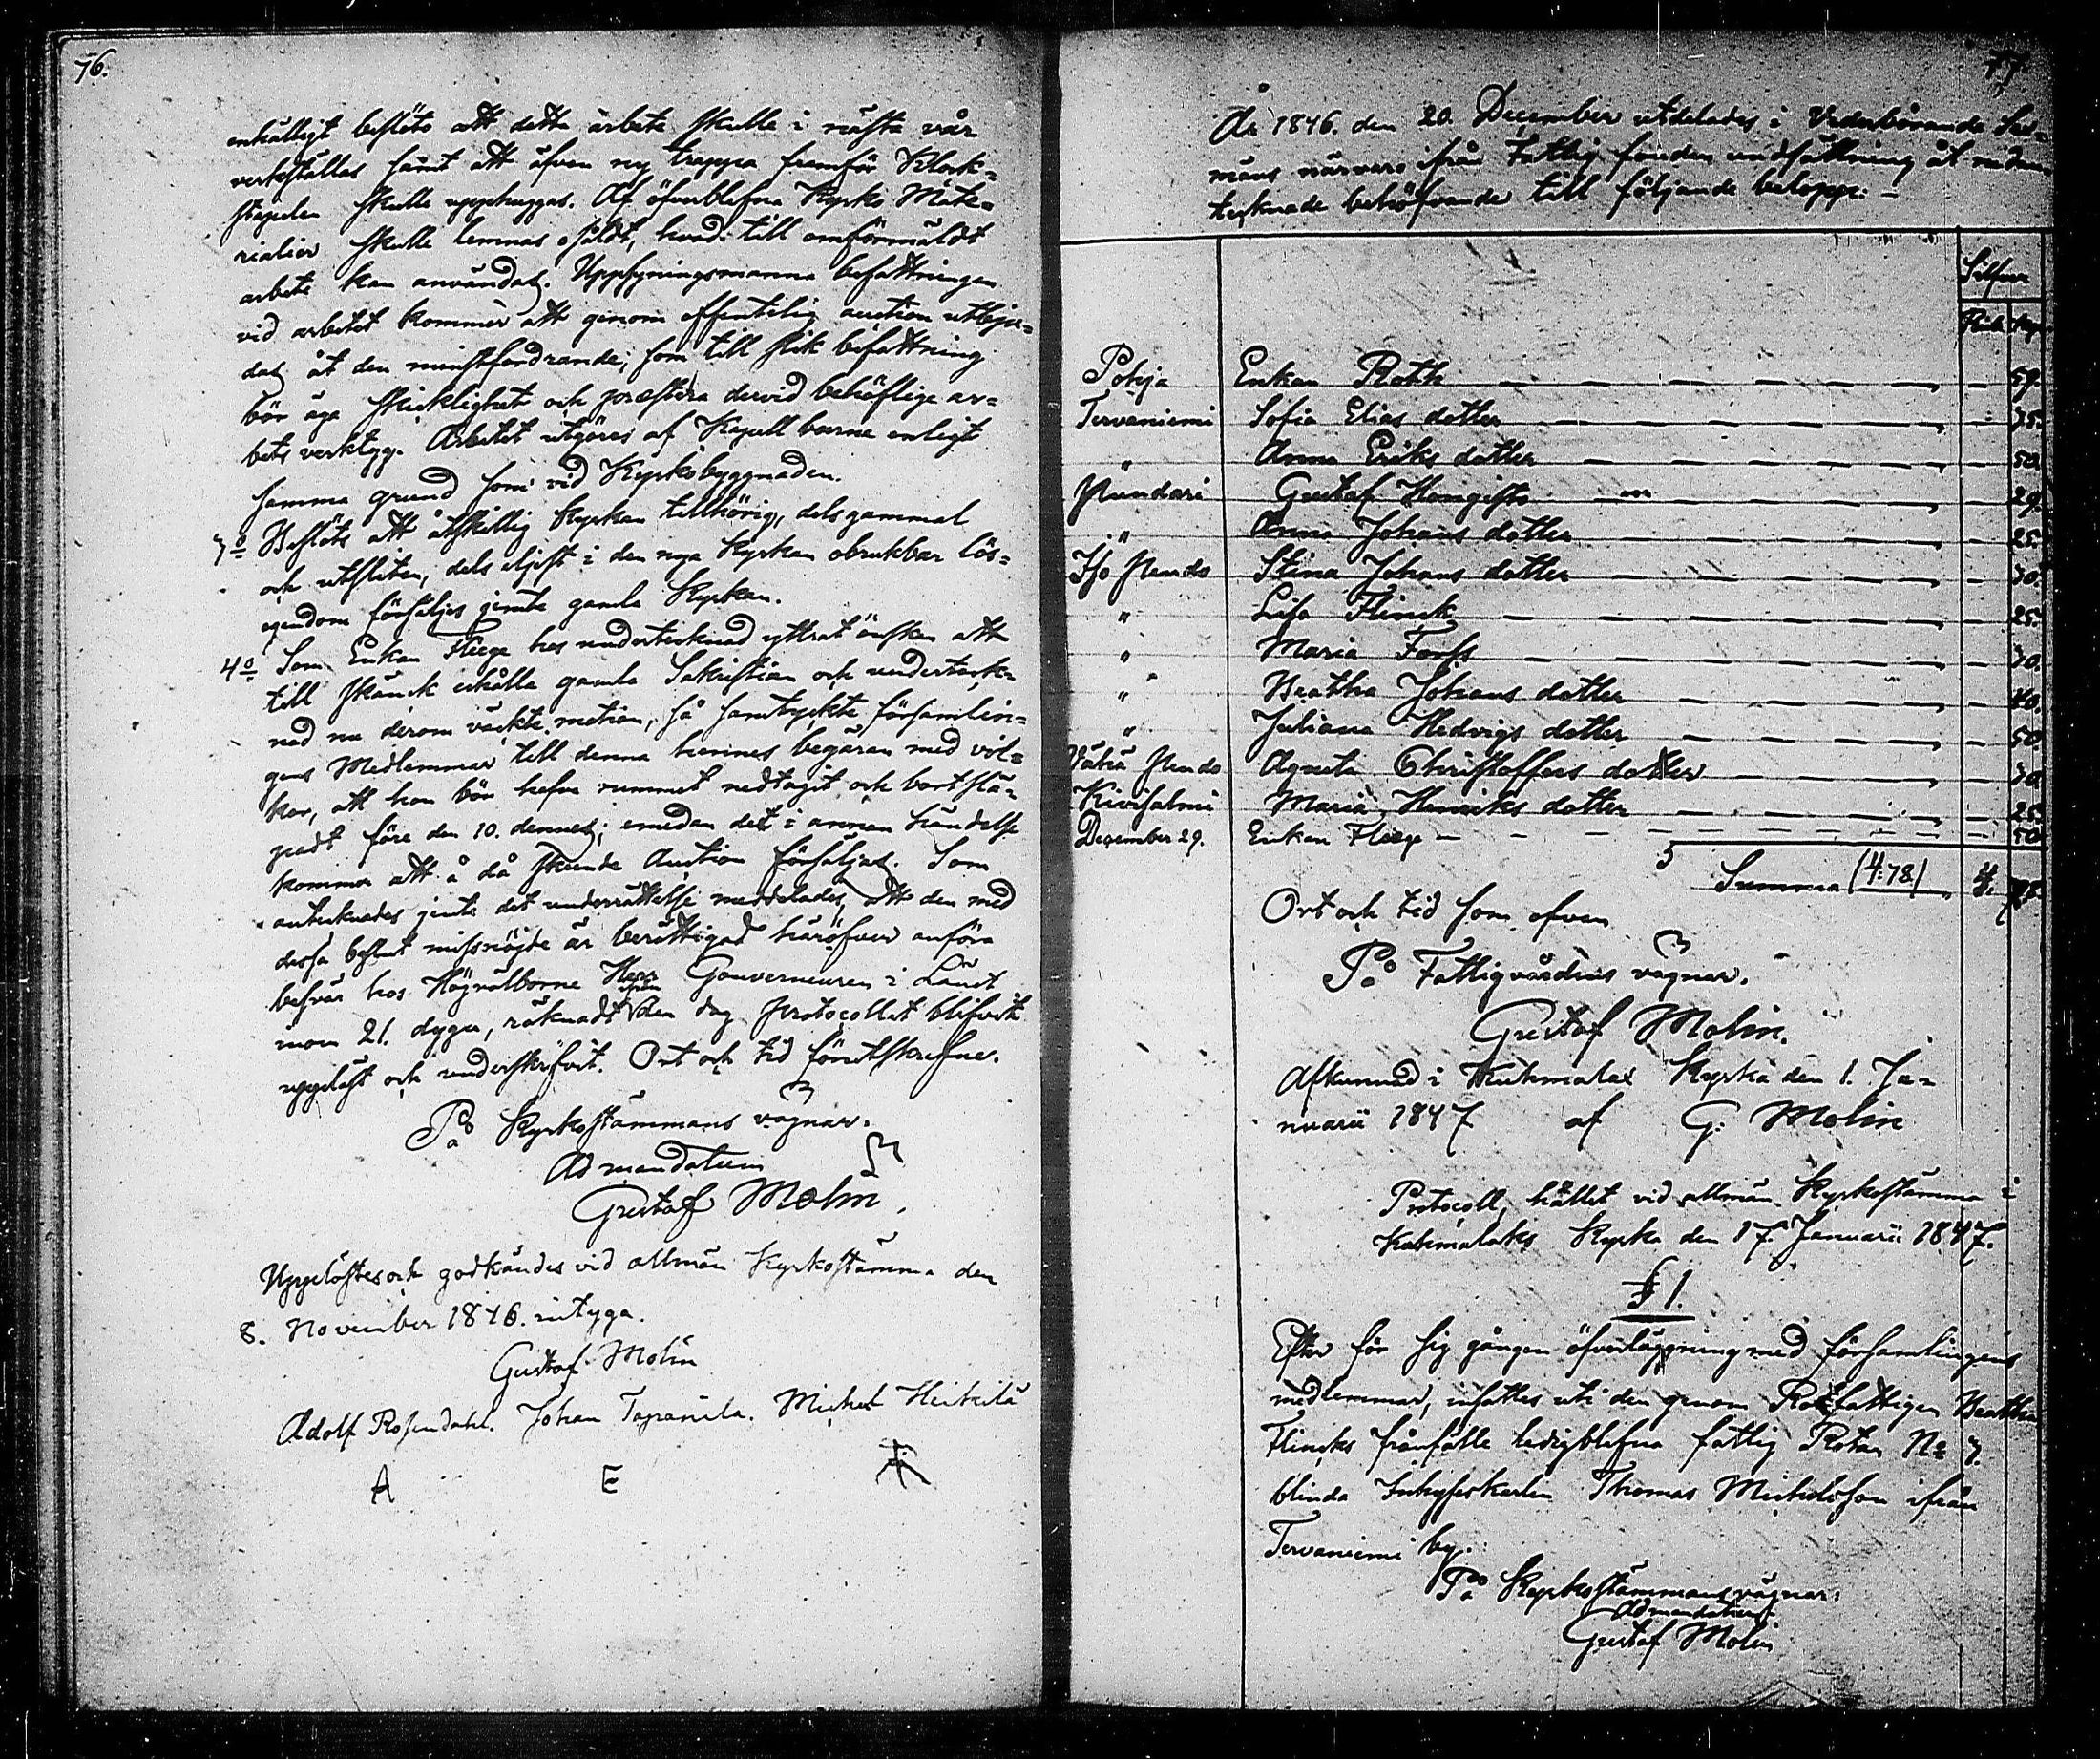 76.
enhälligt beslöts att detta arbete skulle i nästa vår
verkställas samt att äfven ny trappa framför Klock=
stapelen skulle upphuggas. Af öfverblefna Kyrko Mate=
rialier skulle lemnas osåldt, hvad till omförmäldt
arbete kan användas. Uppsyningsmanna befattningen
vid arbetet kommer att genom offentelig auction utbju=
das åt den minstfordrande, som till slik befattning
bör äga skicklighet och præstera dervid behöflige ar=
bets verktyg. Arbetet utgöres af Kapell barne enligt
samma grund som vid Kyrkobyggnaden.
3º Beslöts att åtskillig Kyrkan tillhörig, dels gammal
och utsliten, dels eljest i den nya Kyrkan obrukbar lös=
egendom försäljes jemte gamla Kyrkan.
4º Som Enkan Fleege hos undertecknad yttrat önskan att
till skänck erhålla gamla Sakristian och underteck=
nad nu derom väckte motion, så samtyckte församlin=
gens Medlemmar till denna hennes begäran med vil=
kor, att hon bör hafva rummet nedtagit och bortslä=
padt före den 10. dennes; emedan det i annan händelse
kommer att å då skeende Auction försäljas. Som
antecknades jemte det underrättelse meddelades, att den med
dessa beslut missnöjde är berättigad häröfver anföra
besvär hos Högvälborne Herr Gouverneuren i Länet
inom 21. dygn, räknadt ifrån den dag Protocollet blifvit
uppläst och underskrifvit. Ort och tid förutskrefne.
På Kyrkostämmans vägnar.
Ad mandatum
Gustaf Molin.
Upplästes och godkändes vid allmän Kyrkostämma den
8. November 1846. intyga.
Gustaf Molin
Adolf Rosendahl. Johan Tapanila. Michel Heikkilä
A E
77.
År 1846. den 20. December utdelades i Vederbörande Sex=
mäns närvaro ifrån Fattig fonden undsättning åt nedan
tecknade behöfvande till följande belopp: -
Silfver
Rub. Kop.
Pohja Enkan Roth 59.
Tervaniemi Sofia Elias dotter 35.
" Anna Eriks dotter 50.
Mundari Gustaf Hongisto 29.
" Anna Johans dotter 25.
Iso Mundo Stina Johans dotter 30.
" Lisa Flinck 25.
" Maria Forss 30.
" Beatha Johans dotter 40.
" Juliana Hedvigs dotter 50.
Vähä Mundo Agneta Christoffers dotter 30.
Kivisalmi Maria Henriks dotter 25.
December 29. Enkan Fleege 50.
Summa (4:78) 4. 78.
Ort och tid som ofvan
På Fattigvårdens vägnar.
Gustaf Molin.
Afkunnad i Kuhmalax Kyrka den 1. Ja=
nuarii 1847 af G. Molin
Protocoll, hållet vid allmän Kyrkostämma i
Kuhmalaks Kyrka den 17. Januarii 1847.
§ 1.
Efter för sig gången öfverläggning med församlingens
medlemmar, insattes uti den genom Rotfattigen Beatha
Flincks frånfälle ledigblefna fattig Rotan Nº 3.
blinda Inhyseskarlen Thomas Michelsson ifrån
Tervaniemi by.
På Kyrkostämmans vägnar:
Ad mandatum
Gustaf Molin